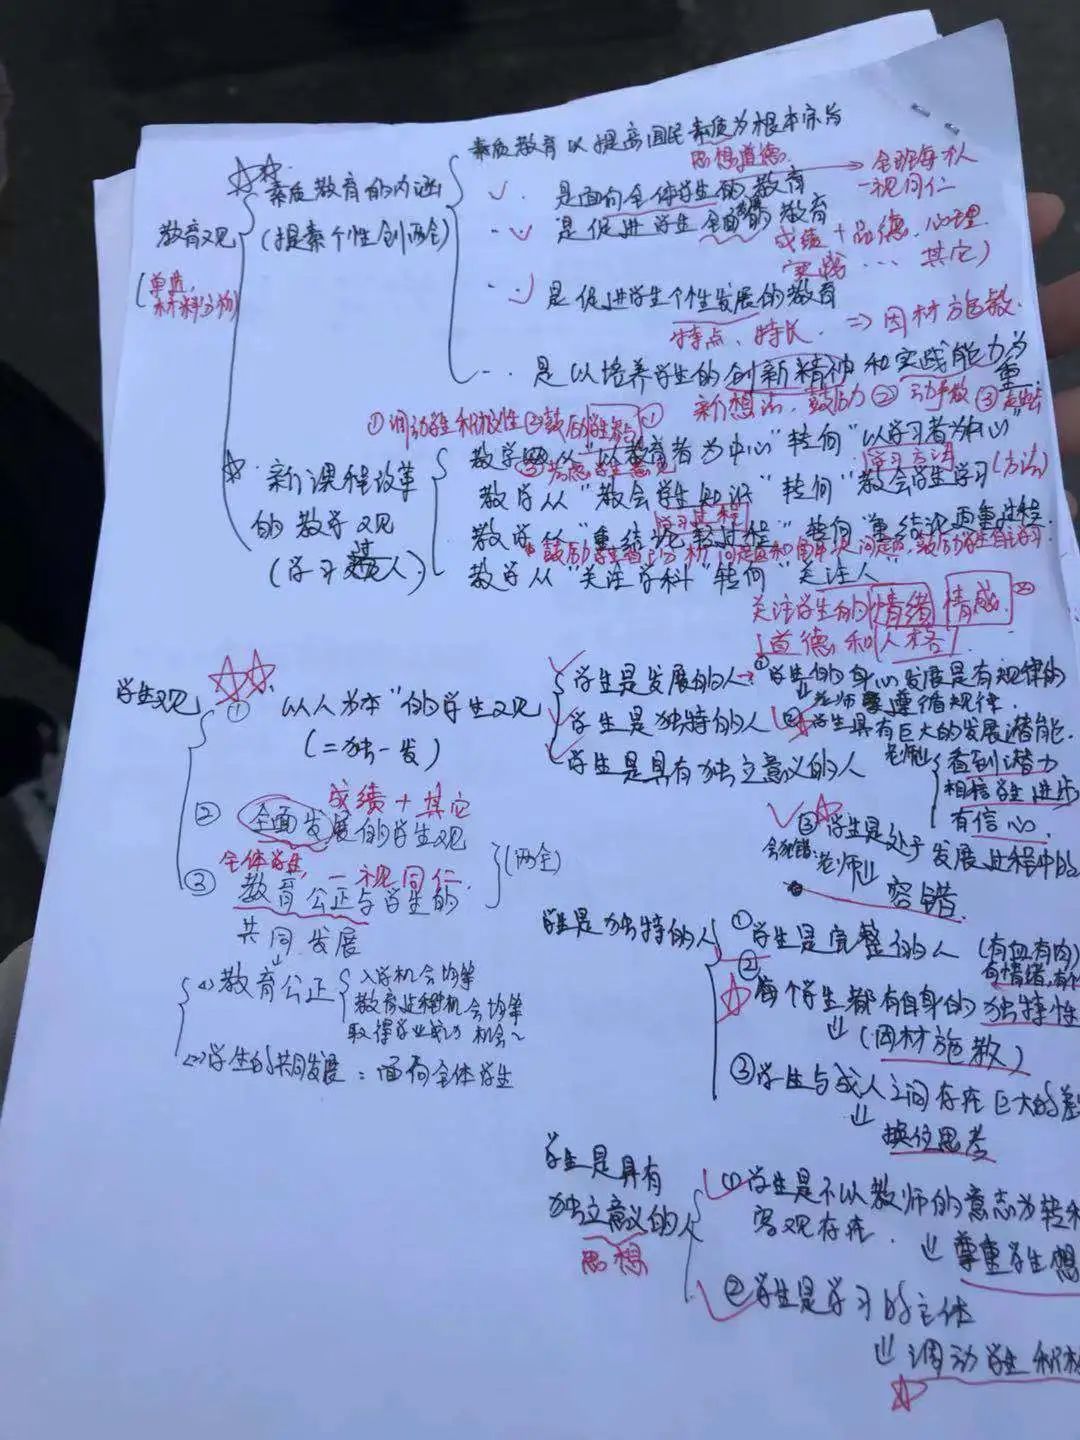 素质教育以提高国民素质为根本宗旨
思想道德
全班每个人
一视同仁
☆☆
素质教育的内涵
是面向全体学生的教育
教育观
(提素个性创两全)
是促进学生全面发展的教育
成绩+品德、心理
实践…其它)
(单选,
材料分析)
是促进学生个性发展的教育
特点、特长. ⇒因材施教.
是以培养学生的创新精神和实践能力为重.
新想法、鼓励②动手做③
①调动学生积极性②鼓励学生参与
教学从"以教育者为中心"转向"以学习者为中心"
学习方法
☆新课程改革
教学从"教会学生知识"转向"教会学生学习(方法)
学习过程
的教学观
教学从"重结论轻过程"转向"重结论更重过程.
(学习过人)
教学从"关注学科"转向"关注人"
关注学生的情绪 情感
道德和人格
☆☆
学生观
①以人为本"的学生观
(二独一发)
学生是发展的人→①学生的身心发展是有规律的
⇓老师要遵循规律.
学生是独特的人
②学生具有巨大的发展潜能.
学生是具有独立意义的人
老师
看到潜力
相信学生进步
有信心
③学生是处于发展过程中的
会犯错.
老师⇓
容错
成绩+其它
②全面发展的学生观
全体学生,一视同仁.
(两全)
③教育公正与学生的
共同发展
<1>教育公正
入学机会均等
教育过程机会均等
取得学业成功机会~
<2>学生的共同发展:面向全体学生
学生是独特的人
①学生是完整的人(有血有肉)
有情绪,有个
②每个学生都有自身的独特性
⇓(因材施教)
③学生与成人之间存在巨大的差
⇓
换位思考
学生是具有
独立意义的人
思想
①学生是不以教师的意志为转移
客观存在.
⇓尊重学生想
②学生是学习的主体
⇓调动学生积极
☆